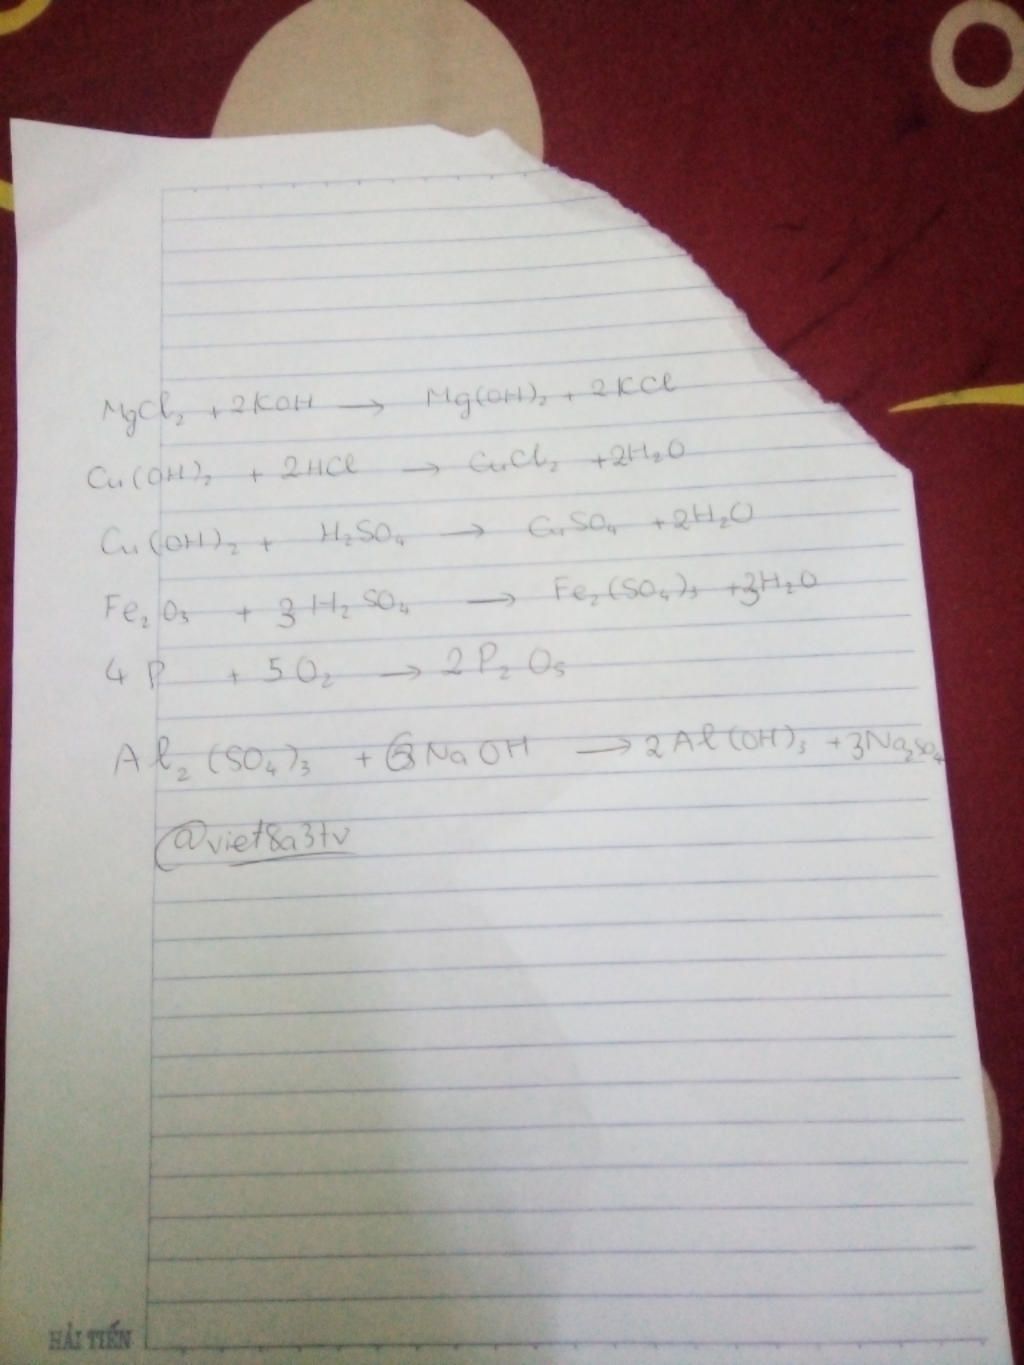 MgCl₂ + 2KOH → Mg(OH)₂ + 2KCl
Cu(OH)₂ + 2HCl → CuCl₂ + 2H₂O
Cu(OH)₂ + H₂SO₄ → CuSO₄ + 2H₂O
Fe₂O₃ + 3H₂SO₄ → Fe₂(SO₄)₃ + 3H₂O
4P + 5O₂ → 2P₂O₅
Al₂(SO₄)₃ + 6NaOH → 2Al(OH)₃ + 3Na₂SO₄
@viet8a3tv
HẢI TIẾN